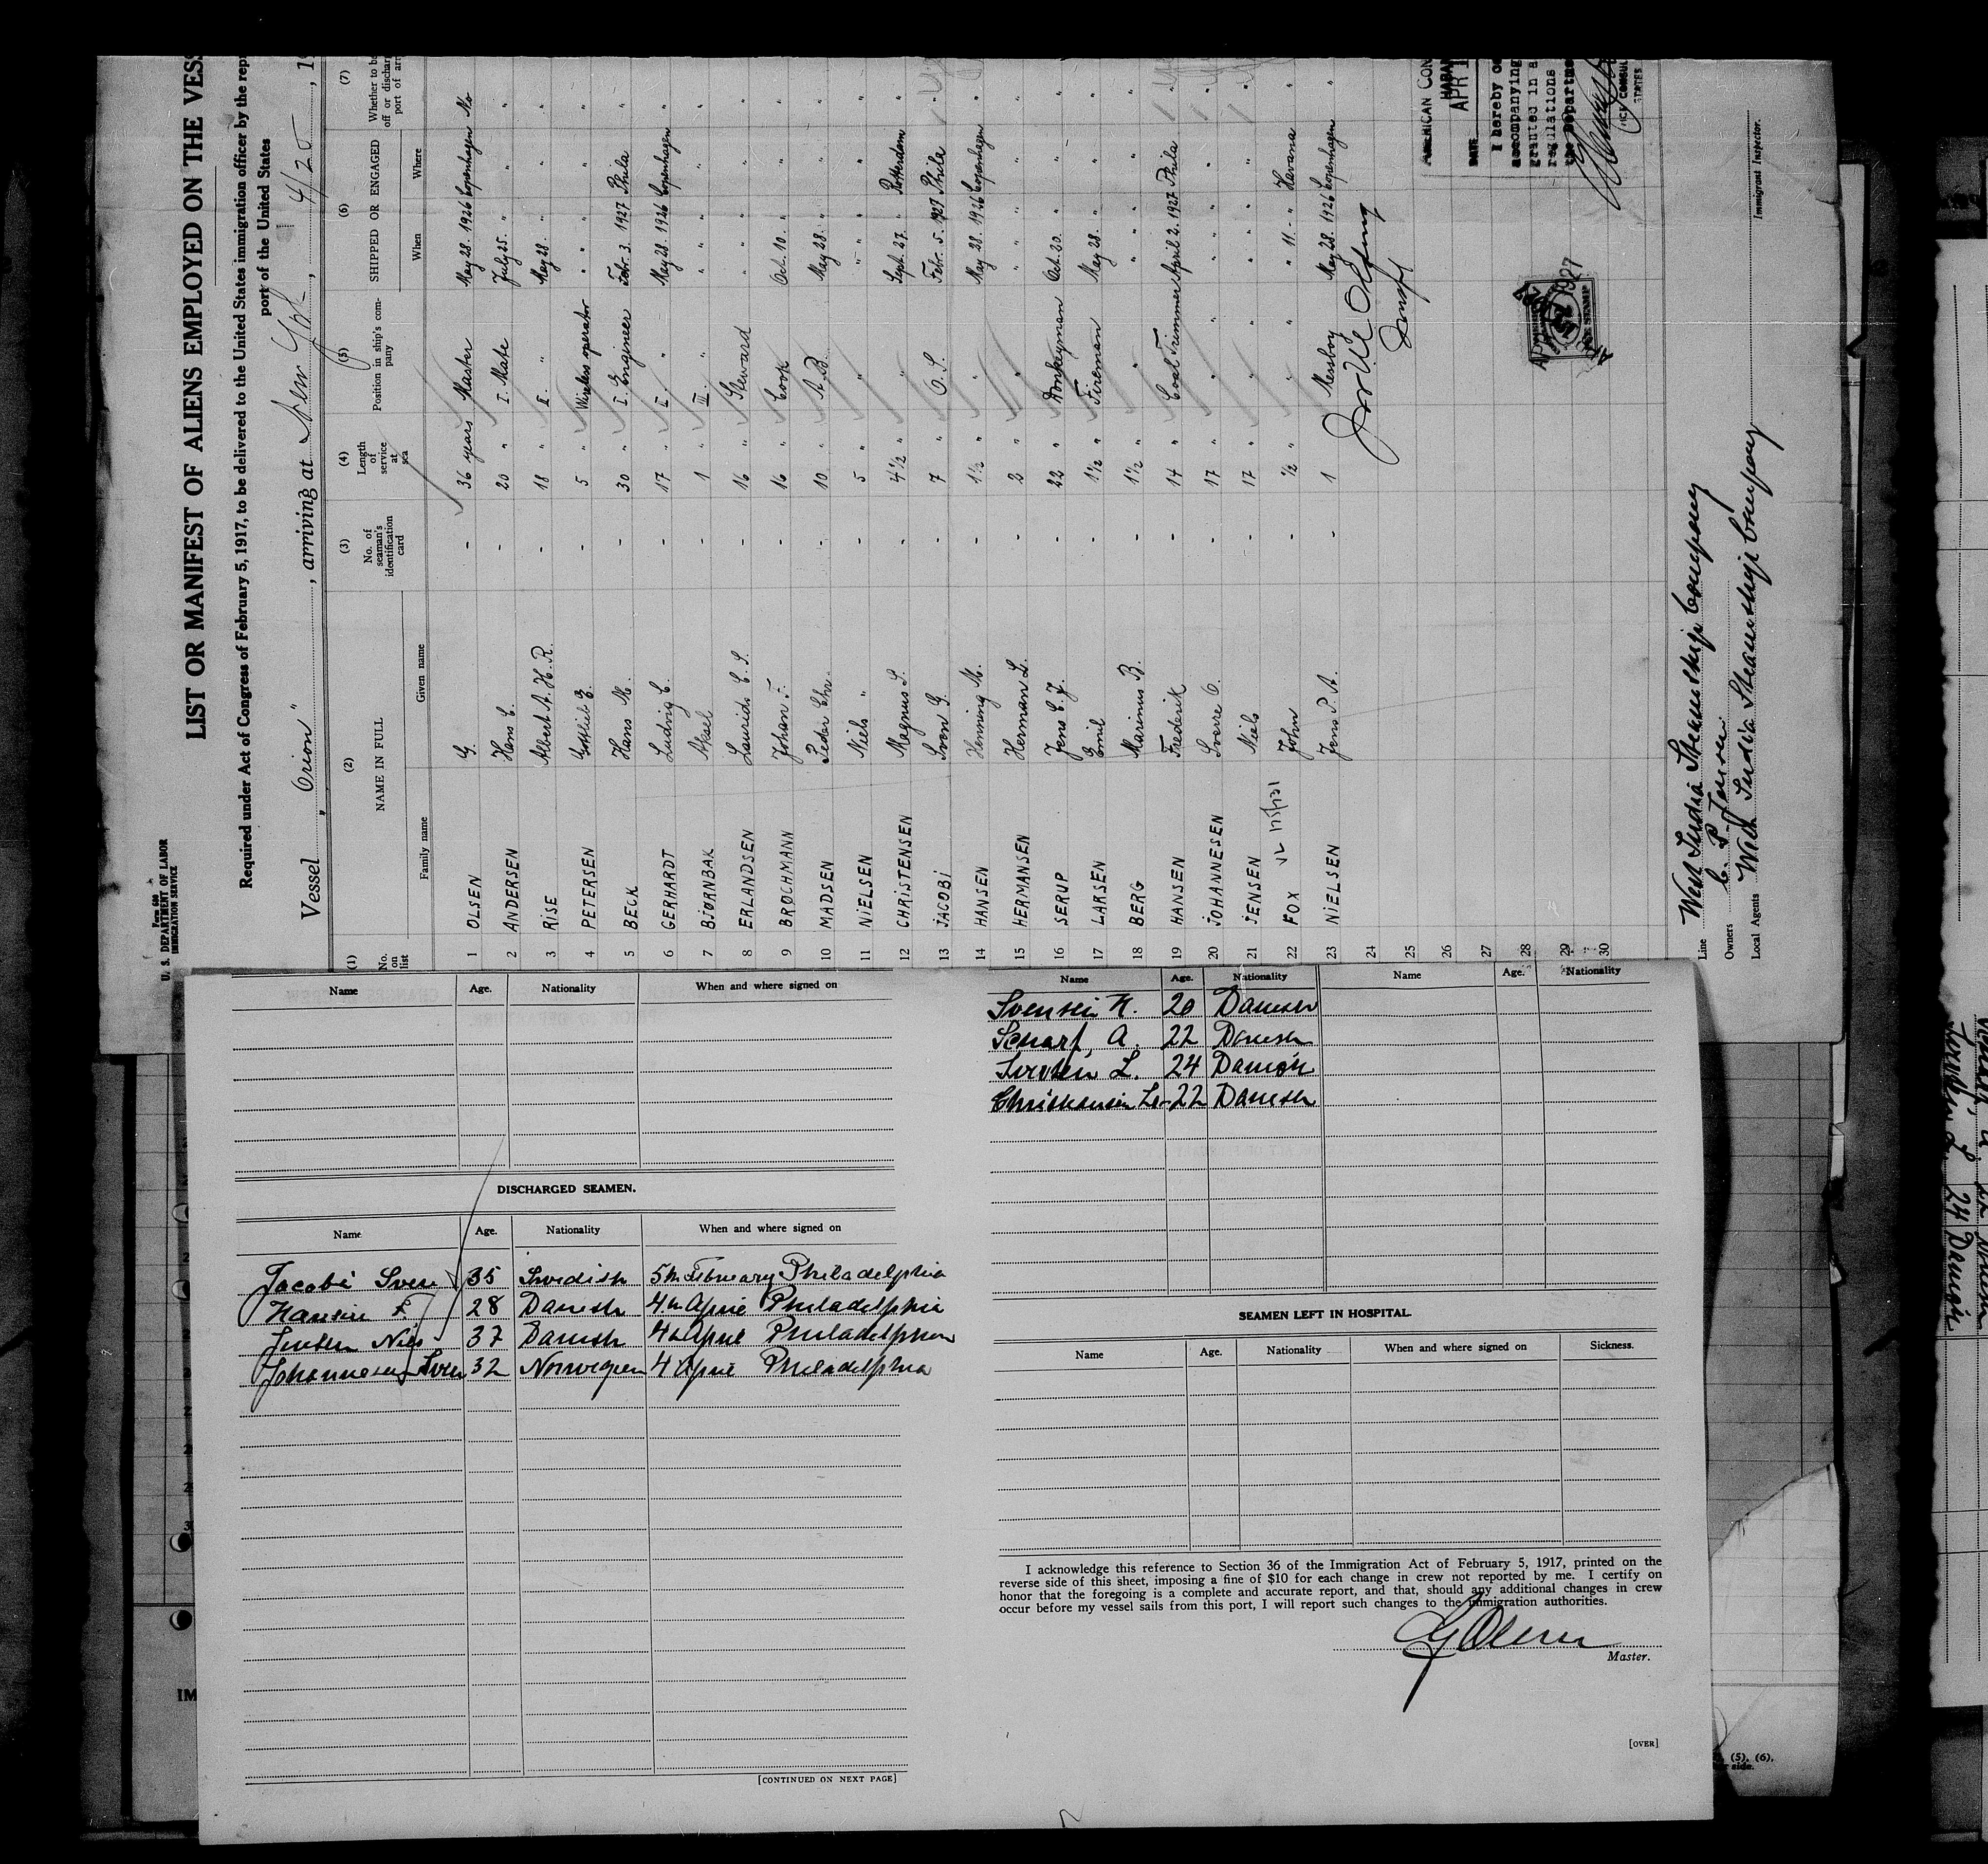 Form 680
U. S. DEPARTMENT OF LABOR
IMMIGRATION SERVICE
LIST OR MANIFEST OF ALIENS EMPLOYED ON THE VESS
Required under Act of Congress of February 5, 1917, to be delivered to the United States immigration officer by the repr
port of the United States
Vessel „Orion", arriving at New York, 4/25, 19
(1) (2) (3) (4) (5) (6) (7)
No. on list NAME IN FULL No. of seaman's identification card Length of service at sea Position in ship's company SHIPPED OR ENGAGED Whether to be off or discharg port of arr
Family name Given name When Where
1 OLSEN G. - 36 years Master May 28. 1926 Copenhagen No
2 ANDERSEN Hans C. - 20 " I. Mate July 25. " " "
3 RISE Albert A. H. R. - 18 " II. " May 28. " " "
4 PETERSEN Gottlieb - 5 " Wireless operator " " " "
5 BECK Hans M. - 30 " I. Engineer Febr. 3. 1927 Phila "
6 GERHARDT Ludvig C. - 17 " II. " May 28. 1926 Copenhagen "
7 BJØRNBAK Aksel - 1 " III. " " " " "
8 ERLANDSEN Laurids C. S. - 16 " Steward " " " "
9 BROCHMANN Johan F. - 16 " Cook Oct. 10. " " "
10 MADSEN Peder Chr. - 10 " A. B. May 28. " " "
11 NIELSEN Niels " - 5 " " " " " "
12 CHRISTENSEN Magnus S. - 4½ " " Sept. 27. " Rotterdam "
13 JACOBI Sven G. - 7 " O. S. Febr. 5. 1927 Phila "
14 HANSEN Henning M. - 1½ " " May 28. 1926 Copenhagen "
15 HERMANSEN Herman L. - 2 " " " " " "
16 SERUP Jens C. J. - 22 " Donkeyman Oct. 20. " " "
17 LARSEN Emil - 1½ " Fireman May 28. " " "
18 BERG Marinus B. - 1½ " " " " " "
19 HANSEN Frederik - 14 " Coal Trimmer April 2. 1927 Phila "
20 JOHANNESEN Sverre O. - 17 " " " " " "
21 JENSEN Niels - 17 " " " " " "
22 FOX John - ½ " " " 11. " Havana "
23 NIELSEN Jens P. A. - 1 Messboy May 28. 1926 Copenhagen "
24
25
26
27
28
29
30
AMERICAN CON
HABAN
DATE APR 1
I hereby ce
accompanying
granted in a
regulations
the Departme
Line West India Steamship Company
Owners C. P. Jensen
Local Agents West India Steamship Company
Immigrant Inspector.
Name Age. Nationality When and where signed on
DISCHARGED SEAMEN.
Name Age. Nationality When and where signed on
Jacobi Sven 35 Swedish 5th February Philadelphia
Hansen F 28 Danish 4th April Philadelphia
Jensen Niels 37 Danish 4th April Philadelphia
Johannesen Sven 32 Norwegian 4 April Philadelphia
[CONTINUED ON NEXT PAGE]
Name Age. Nationality Name Age. Nationality
Svensen K. 20 Danish
Scharf, A. 22 Danish
L. 24 Danish
Christiansen 22 Danish
SEAMEN LEFT IN HOSPITAL.
Name Age. Nationality When and where signed on Sickness.
I acknowledge this reference to Section 36 of the Immigration Act of February 5, 1917, printed on the
reverse side of this sheet, imposing a fine of $10 for each change in crew not reported by me. I certify on
honor that the foregoing is a complete and accurate report, and that, should any additional changes in crew
occur before my vessel sails from this port, I will report such changes to the immigration authorities.
G Olsen
Master.
[OVER]
IM
(5), (6),
side.